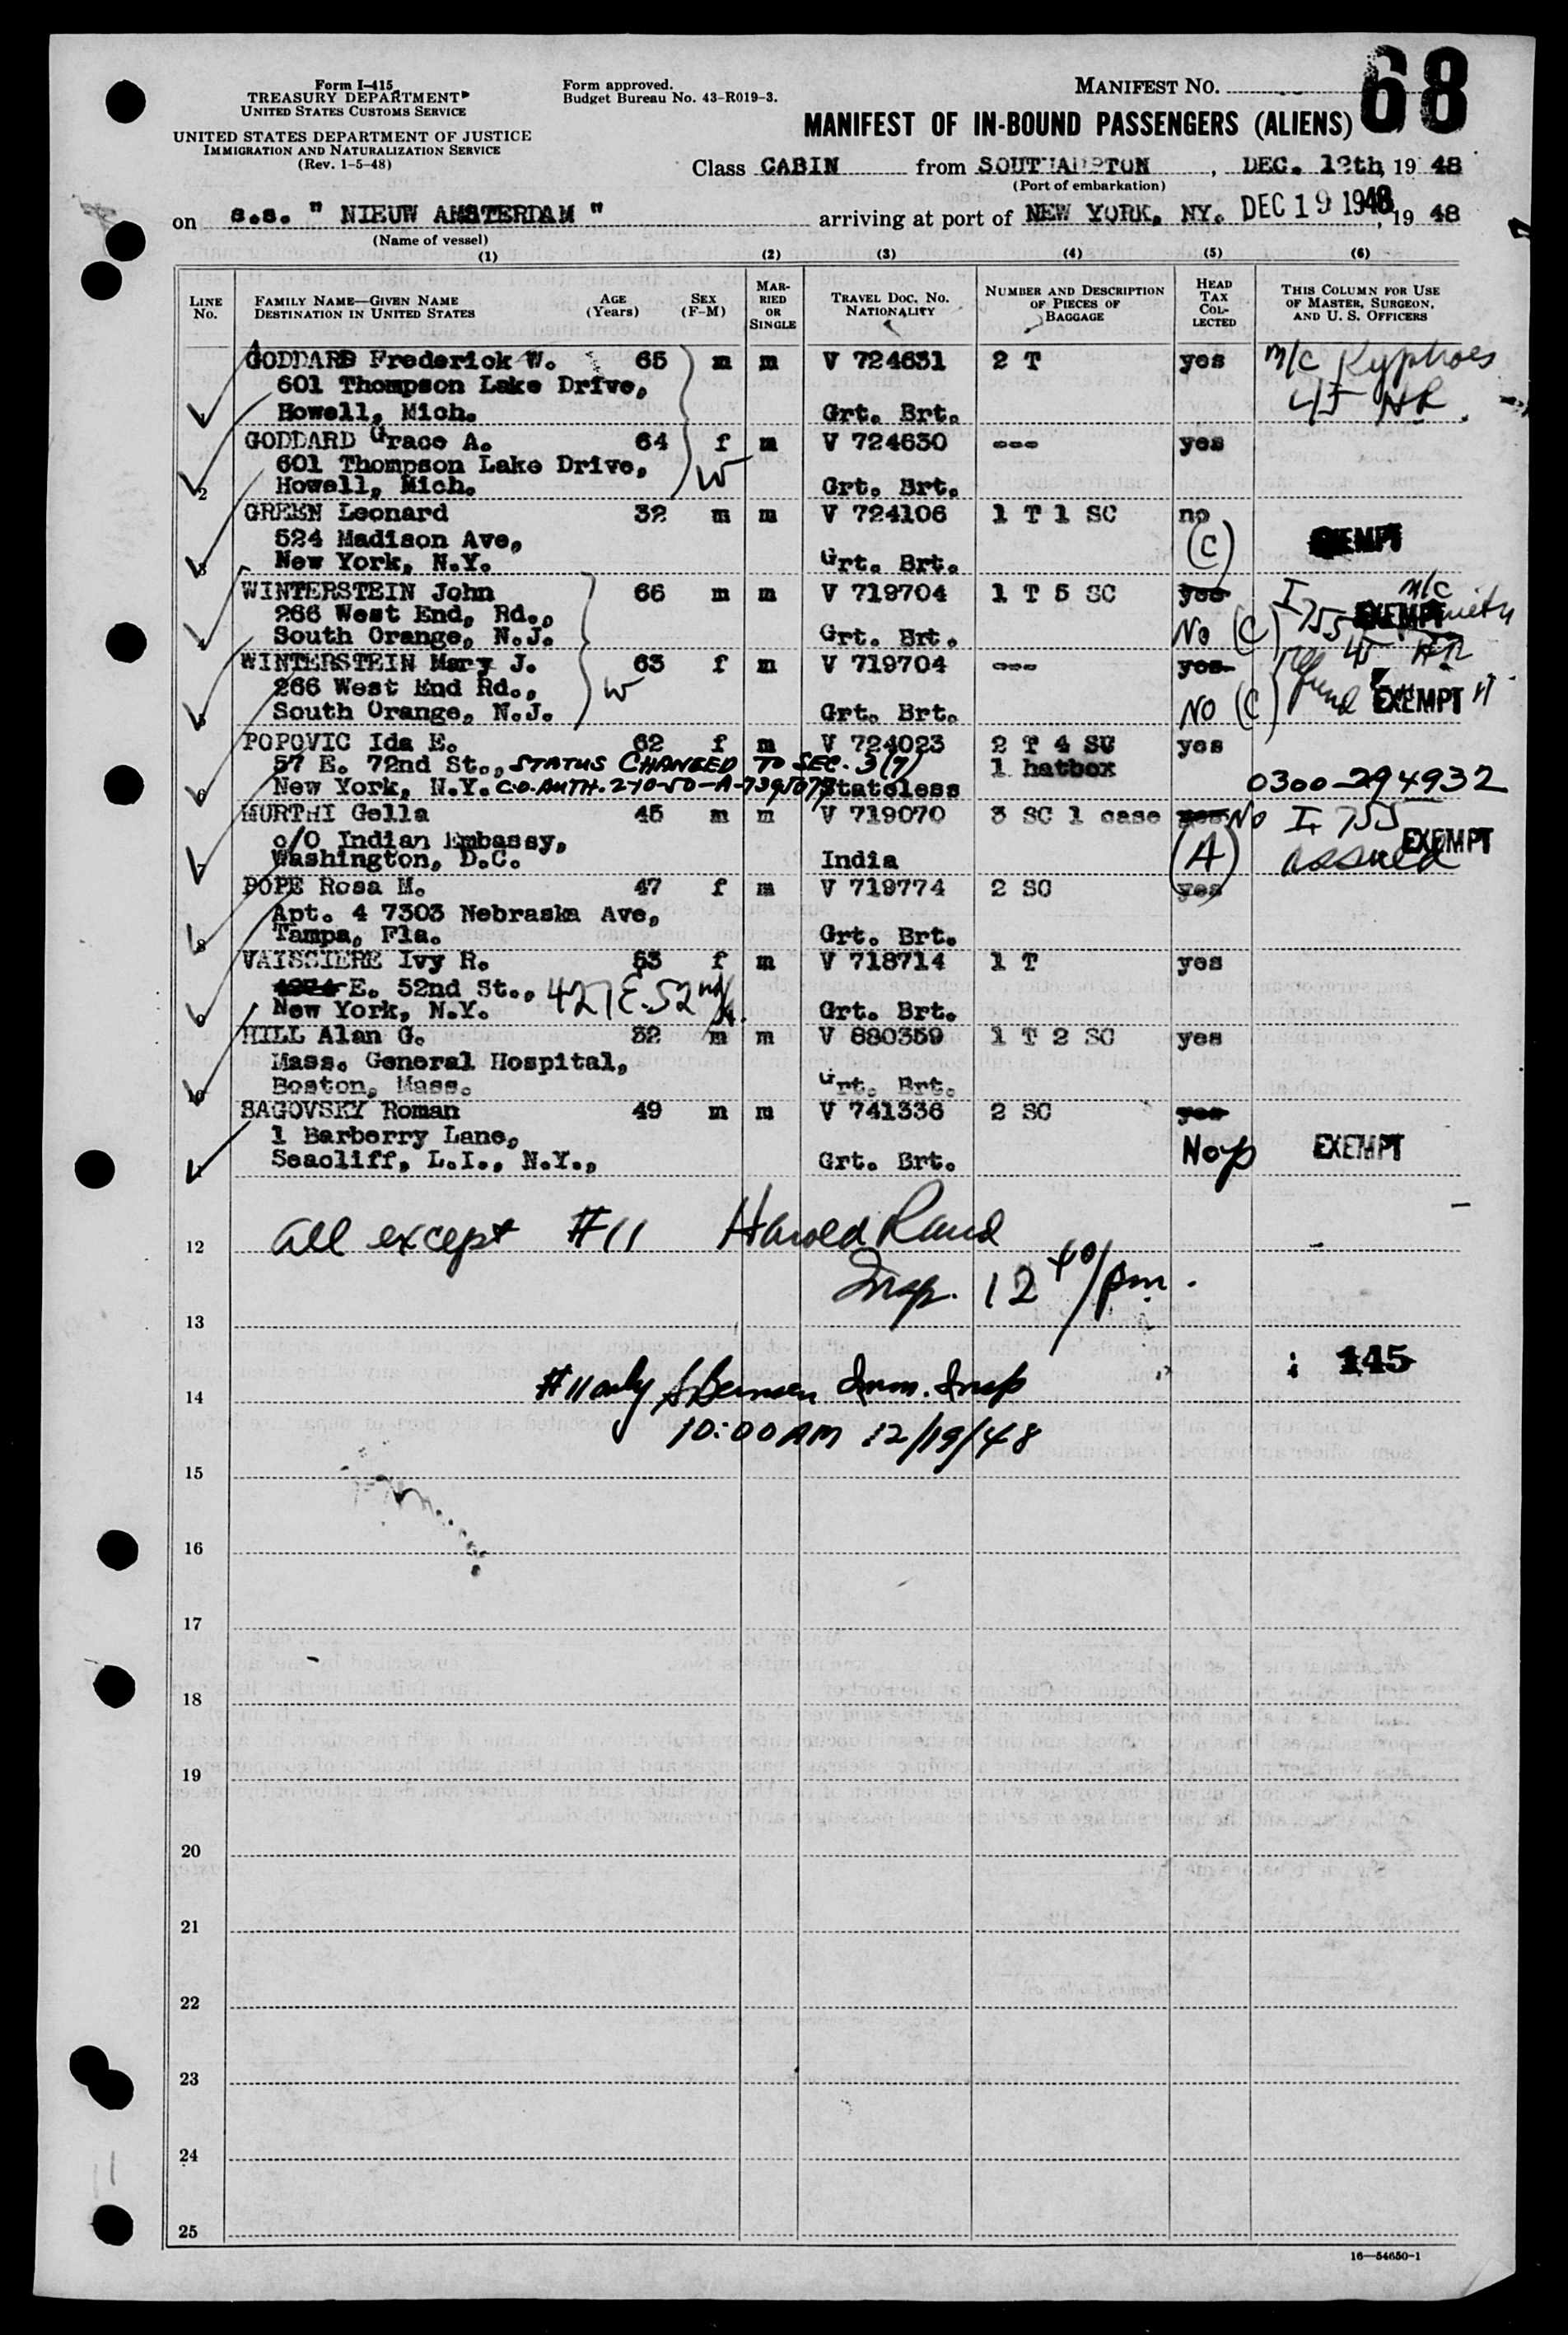 Form I-415
TREASURY DEPARTMENT
UNITED STATES CUSTOMS SERVICE
UNITED STATES DEPARTMENT OF JUSTICE
IMMIGRATION AND NATURALIZATION SERVICE
(Rev. 1-5-48)
Form approved.
Budget Bureau No. 43-R019-3.
MANIFEST NO. 68
MANIFEST OF IN-BOUND PASSENGERS (ALIENS)
Class CABIN from SOUTHAMPTON, DEC. 12th, 19 48
(Port of embarkation)
on s.s. " NIEUW AMSTERDAM " arriving at port of NEW YORK, NY. DEC 19 1948, 19 48
(Name of vessel)
(1) (2) (3) (4) (5) (6)
LINE No. FAMILY NAME—GIVEN NAME DESTINATION IN UNITED STATES AGE (Years) SEX (F-M) MARRIED OR SINGLE TRAVEL DOC. NO. NATIONALITY NUMBER AND DESCRIPTION OF PIECES OF BAGGAGE HEAD TAX COLLECTED THIS COLUMN FOR USE OF MASTER, SURGEON, AND U. S. OFFICERS
GODDARD Frederick W. 65 m m V 724631 2 T yes m/c
601 Thompson Lake Drive,
Howell, Mich. Grt. Brt.
GODDARD Grace A. 64 f m V 724630 --- yes
601 Thompson Lake Drive, W
2 Howell, Mich. Grt. Brt.
GREEN Leonard 32 m m V 724106 1 T 1 SC no
524 Madison Ave, (C) EXEMPT
3 New York, N.Y. Grt. Brt.
WINTERSTEIN John 66 m m V 719704 1 T 5 SC yes I 755 m/c
266 West End, Rd., EXEMPT
4 South Orange, N.J. Grt. Brt. No (C)
WINTERSTEIN Mary J. 63 f m V 719704 --- yes
266 West End Rd., W
South Orange, N.J. Grt. Brt. NO (C) EXEMPT
POPOVIC Ida E. 62 f m V 724023 2 T 4 SC yes
57 E. 72nd St., STATUS CHANGED TO SEC. 3(7) 1 hatbox
6 New York, N.Y. C.O. AUTH. 2-10-50-A-7395079 Stateless 0300-294932
MURTHI Gella 45 m m V 719070 3 SC 1 case yes No I 755
c/O Indian Embassy, (A) EXEMPT
7 Washington, D.C. India
POPE Rosa M. 47 f m V 719774 2 SC yes
Apt. 4 7303 Nebraska Ave,
8 Tampa, Fla. Grt. Brt.
VAISSIERE Ivy R. 53 f m V 718714 1 T yes
E. 52nd St., 427 E. 52nd St.
9 New York, N.Y. Grt. Brt.
HILL Alan G. 32 m m V 880359 1 T 2 SC yes
Mass. General Hospital,
Boston, Mass. Grt. Brt.
SAGOVSKY Roman 49 m m V 741336 2 SC yes
1 Barberry Lane,
Seacliff, L.I., N.Y., Grt. Brt. No EXEMPT
12 all except #11 Harold Rand
Insp. 12 40/pm.
13
145
14 #11 only Imm. Insp
10:00 AM 12/19/48
15
16
17
18
19
20
21
22
23
24
25
16—54650-1